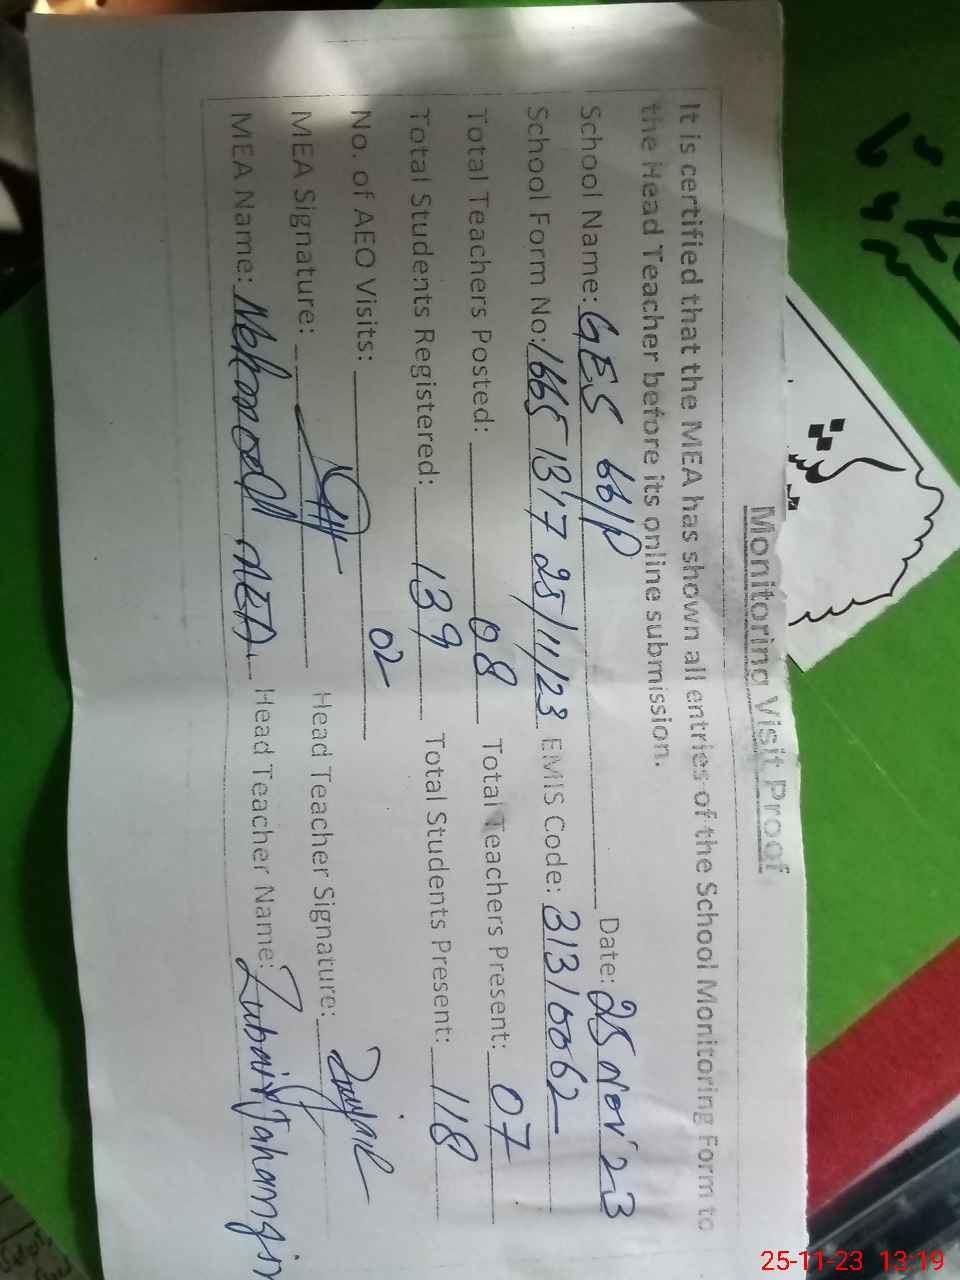 Monitoring Visit Proof
It is certified that the MEA has shown all entries of the School Monitoring Form to
the Head Teacher before its online submission.
School Name: GES 66/P Date: 25 Nov' 23
School Form No: 1665 1317 25/11/23 EMIS Code: 31310062
Total Teachers Posted: 08 Total Teachers Present: 07
Total Students Registered: 139 Total Students Present: 118
No. of AEO Visits: 02
MEA Signature: Head Teacher Signature:
MEA Name: Head Teacher Name: Zubair Jahangir
25-11-23 13:19